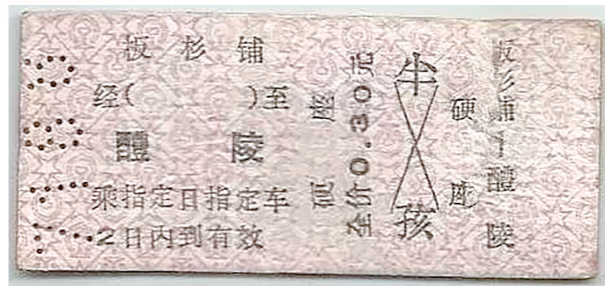 板杉铺
经( )至
醴陵
乘指定日指定车
2日内到有效
硬座
全价0.30元
半孩
硬座
板杉铺—醴陵